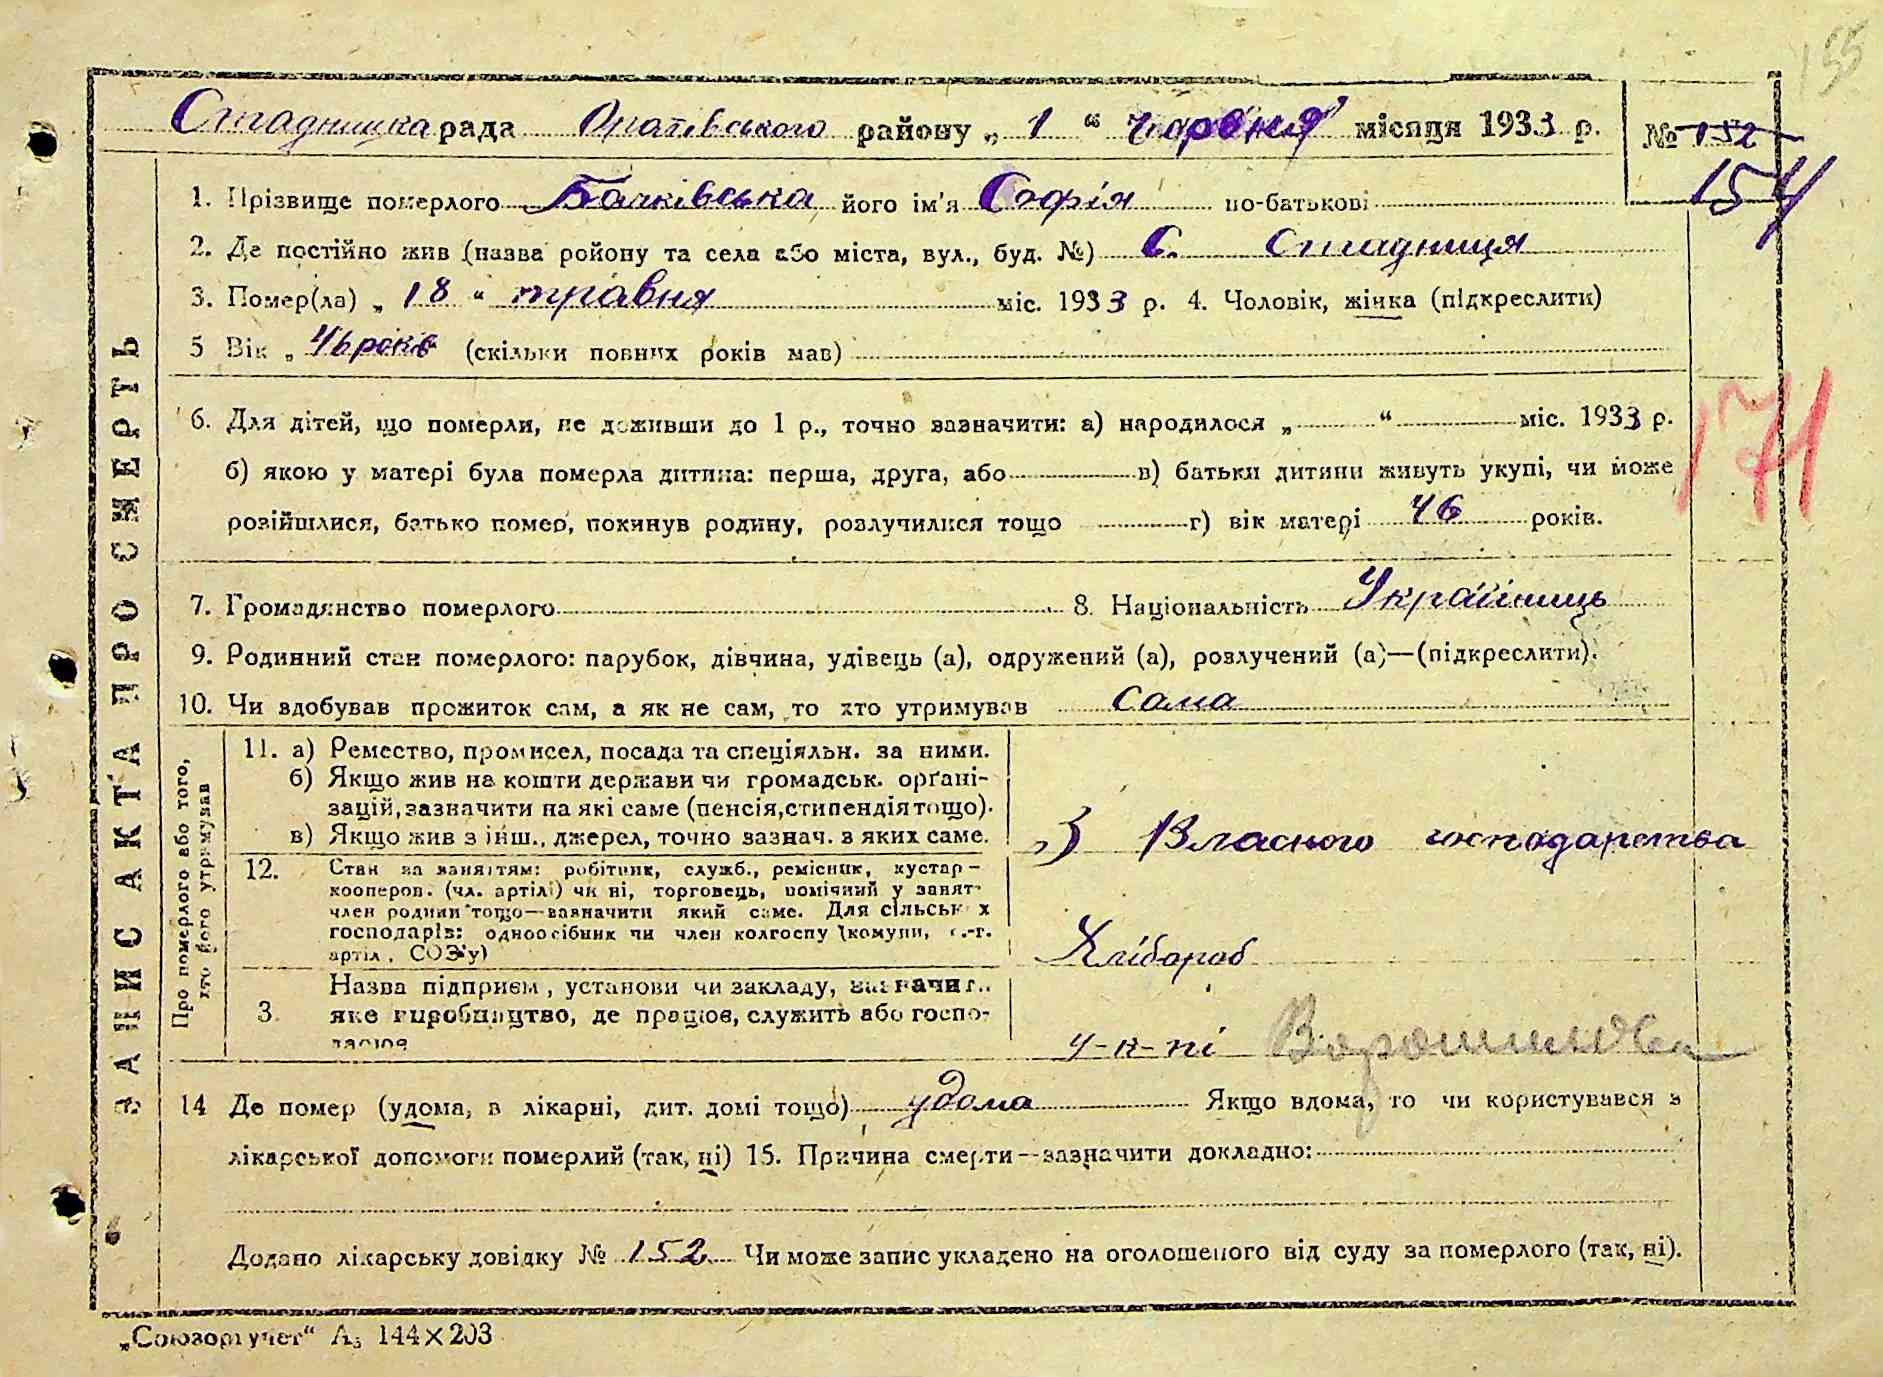 155
Стадницка рада Оратівського району „ 1 “ червня місяця 1933 р. № 152
154
1. Прізвище померлого Бачківська його ім'я Софія по-батькові
2. Де постійно жив (назва ройону та села або міста, вул., буд. №) С. Стадниця
3. Помер(ла) „ 18 “ травня міс. 1933 р. 4. Чоловік, жінка (підкреслити)
5 Вік „ 46 років (скільки повних років мав)
171
6. Для дітей, що померли, не доживши до 1 р., точно зазначити: а) народилося „ “ міс. 1933 р.
б) якою у матері була померла дитина: перша, друга, або в) батьки дитини живуть укупі, чи може
розійшлися, батько помер, покинув родину, розлучилися тощо г) вік матері 46 років.
7. Громадянство померлого 8. Національність Українець
9. Родинний стан померлого: парубок, дівчина, удівець (а), одружений (а), розлучений (а)—(підкреслити).
10. Чи здобував прожиток сам, а як не сам, то хто утримував сама
ЗАПИС АКТА ПРО СМЕРТЬ
Про померлого або того, хто його утримував
11. а) Ремество, промисел, посада та спеціяльн. за ними.
б) Якщо жив на кошти держави чи громадськ. орґані-
зацій, зазначити на які саме (пенсія, стипендія тощо).
в) Якщо жив з інш., джерел, точно зазнач. з яких саме.
З Власного господарства
12. Стан за заняттям: робітник, служб., ремісник, кустар—
кооперов. (чл. артілі) чи ні, торговець, помічний у занят-
член родини тощо—зазначити який саме. Для сільських
господарів: одноосібник чи член колгоспу (комуни, с.-г.
артіл, СОЗ'у)
Хлібороб
3. Назва підприєм, установи чи закладу, зазначит..
яке виробництво, де працюв, служить або госпо-
дарюв
у-к-пі Ворошилова
14 Де помер (удома, в лікарні, дит. домі тощо) удома Якщо вдома, то чи користувався з
лікарської допомоги померлий (так, ні) 15. Причина смерти—зазначити докладно:
Додано лікарську довідку № 152 Чи може запис укладено на оголошеного від суду за померлого (так, ні).
„Союзоргучет“ А₅ 144×203